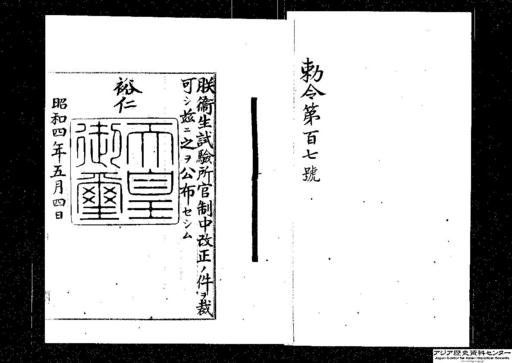 勅令第百七號
朕衞生試驗所官制中改正ノ件ヲ裁
可シ玆ニ之ヲ公布セシム
裕仁
天皇
御璽
昭和四年五月四日
アジア歴史資料センター
Japan Center for Asian Historical Records